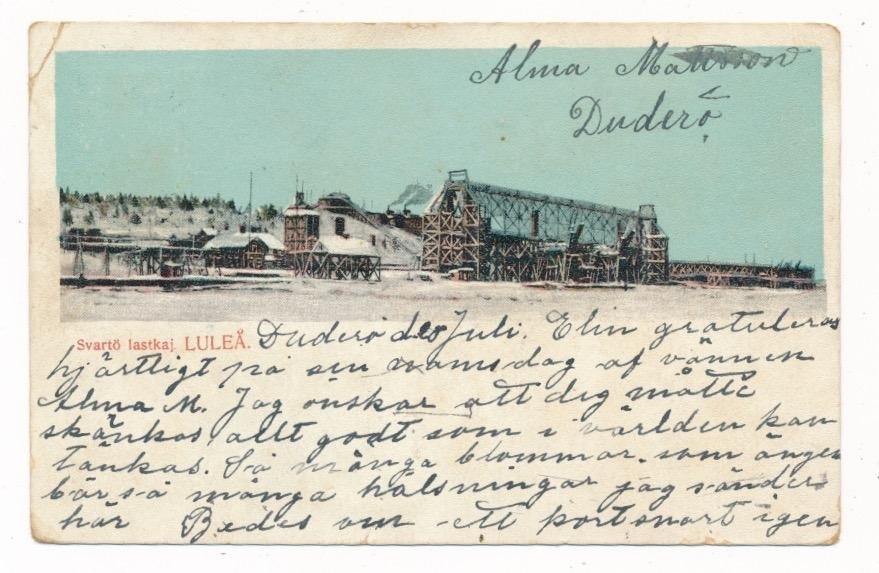 Alma Matsson
Duderö
Svartö lastkaj LULEÅ.
Duderö d 20 Juli. Elin gratuleras
hjärtligt på sin namsdag af vännen
Alma M. Jag önskar att dig måtte
skänkas allt godt som i världen kan
tänkas. Så många blommor som ängen
bär så många hälsningar jag sänder
här Bedes om ett kort snart igen